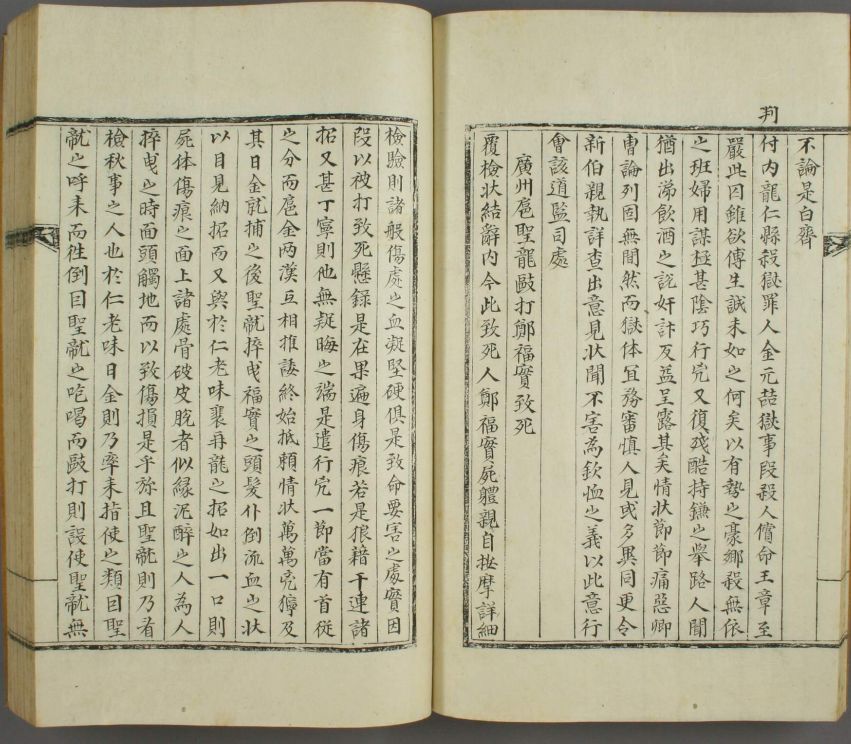 判
不論是白齊
付內龍仁縣殺獄罪人金元喆獄事段殺人償命王章至
嚴此囚雖欲傅生誠未如之何矣以有勢之豪鄉殺無依
之班婦用謀極甚陰巧行兇又復殘酷持鎌之擧路人聞
猶出涕飮酒之說奸計反益呈露其矣情狀節節痛惡卿
曺論列固無間然而獄体宜務審愼人見或多異同更令
新伯親執詳查出意見狀聞不害為欽恤之義以此意行
會該道監司處
廣州扈聖龍敺打鄭福實致死
覆檢狀結辭內今此致死人鄭福實屍軆親自按摩詳細
檢驗則諸般傷處之血凝堅硬俱是致命要害之處實因
段以被打致死懸錄是在果遍身傷痕若是狼藉干連諸
招又甚丁寧則他無疑晦之端是遣行兇一節當有首從
之分而扈金两漢互相推諉終始抵賴情狀萬萬兇獰及
其日金就捕之後聖龍捽曳福實之頭髮仆倒流血之狀
以目見納招而又與於仁老味裵再龍之招如出一口則
屍体傷痕之面上諸處骨破皮脫者似緣泥醉之人為人
捽曳之時面頭觸地而以致傷損是乎旀且聖龍則乃看
檢秋事之人也於仁老味日金則乃率來指使之類因聖
龍之呼來而徃到因聖龍之咆喝而敺打則設使聖龍無